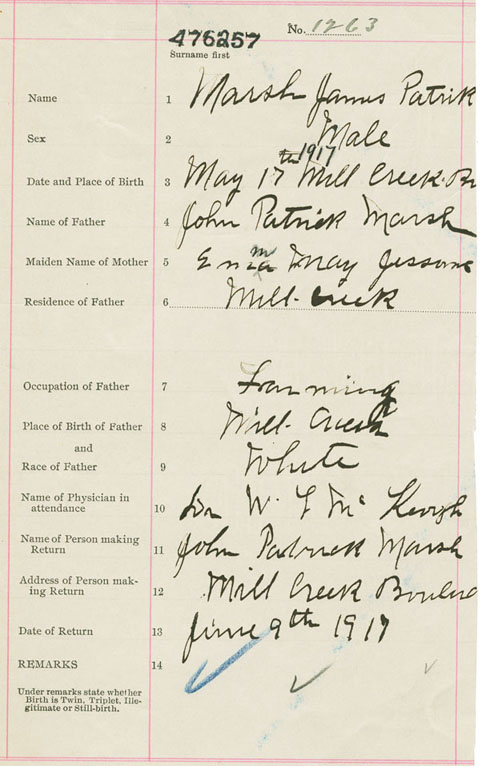 No. 1263
476257
Surname first
Name 1 Marsh James Patrik
Sex 2 Male
Date and Place of Birth 3 May 17th 1917 Mill Creek
Name of Father 4 John Patrick Marsh
Maiden Name of Mother 5 Emma May
Residence of Father 6 Mill Creek
Occupation of Father 7 Farming
Place of Birth of Father 8 Mill Creek
and
Race of Father 9 White
Name of Physician in
attendance 10 W.
Name of Person making
Return 11 John Patrick Marsh
Address of Person mak-
ing Return 12 Mill Creek
Date of Return 13 June 9th 1917
REMARKS 14
Under remarks state whether
Birth is Twin, Triplet, Ille-
gitimate or Still-birth.